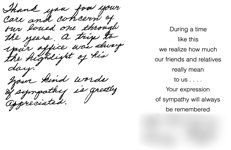 Thank you for your
care and concern of
our loved one through
the years. A trip to
your office was always
the highlight of his
day.
Your kind words
of sympathy is greatly
appreciated.
During a time
like this
we realize how much
our friends and relatives
really mean
to us . . . .
Your expression
of sympathy will always
be remembered